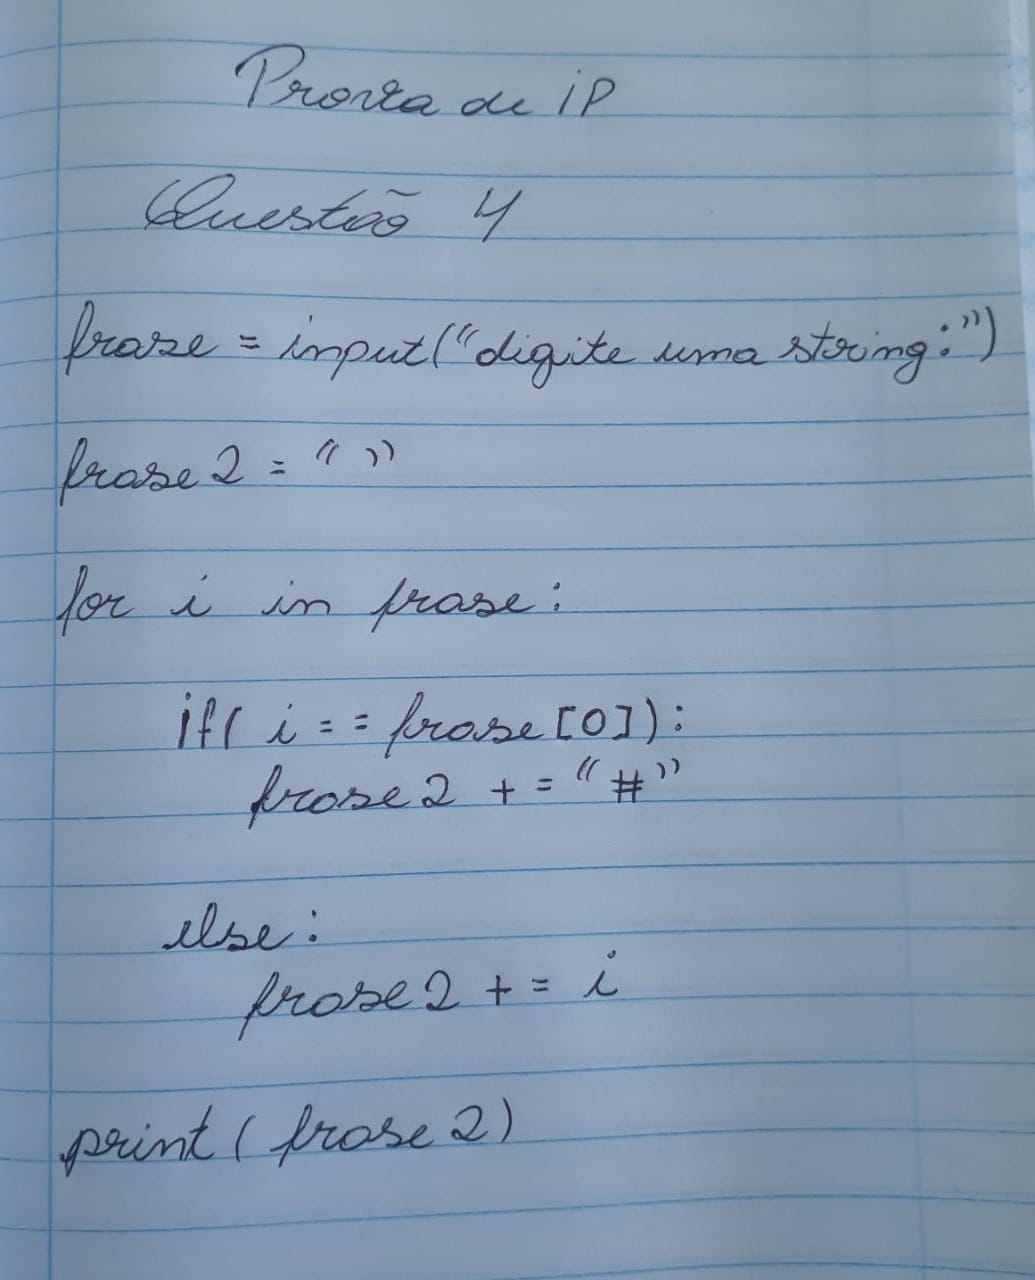 Prova de IP
Questão 4
frase = input("digite uma string:")
frase2 = " "
for i in frase:
if( i == frase[0]):
frase2 += "#"
else:
frase2 += i
print( frase2)